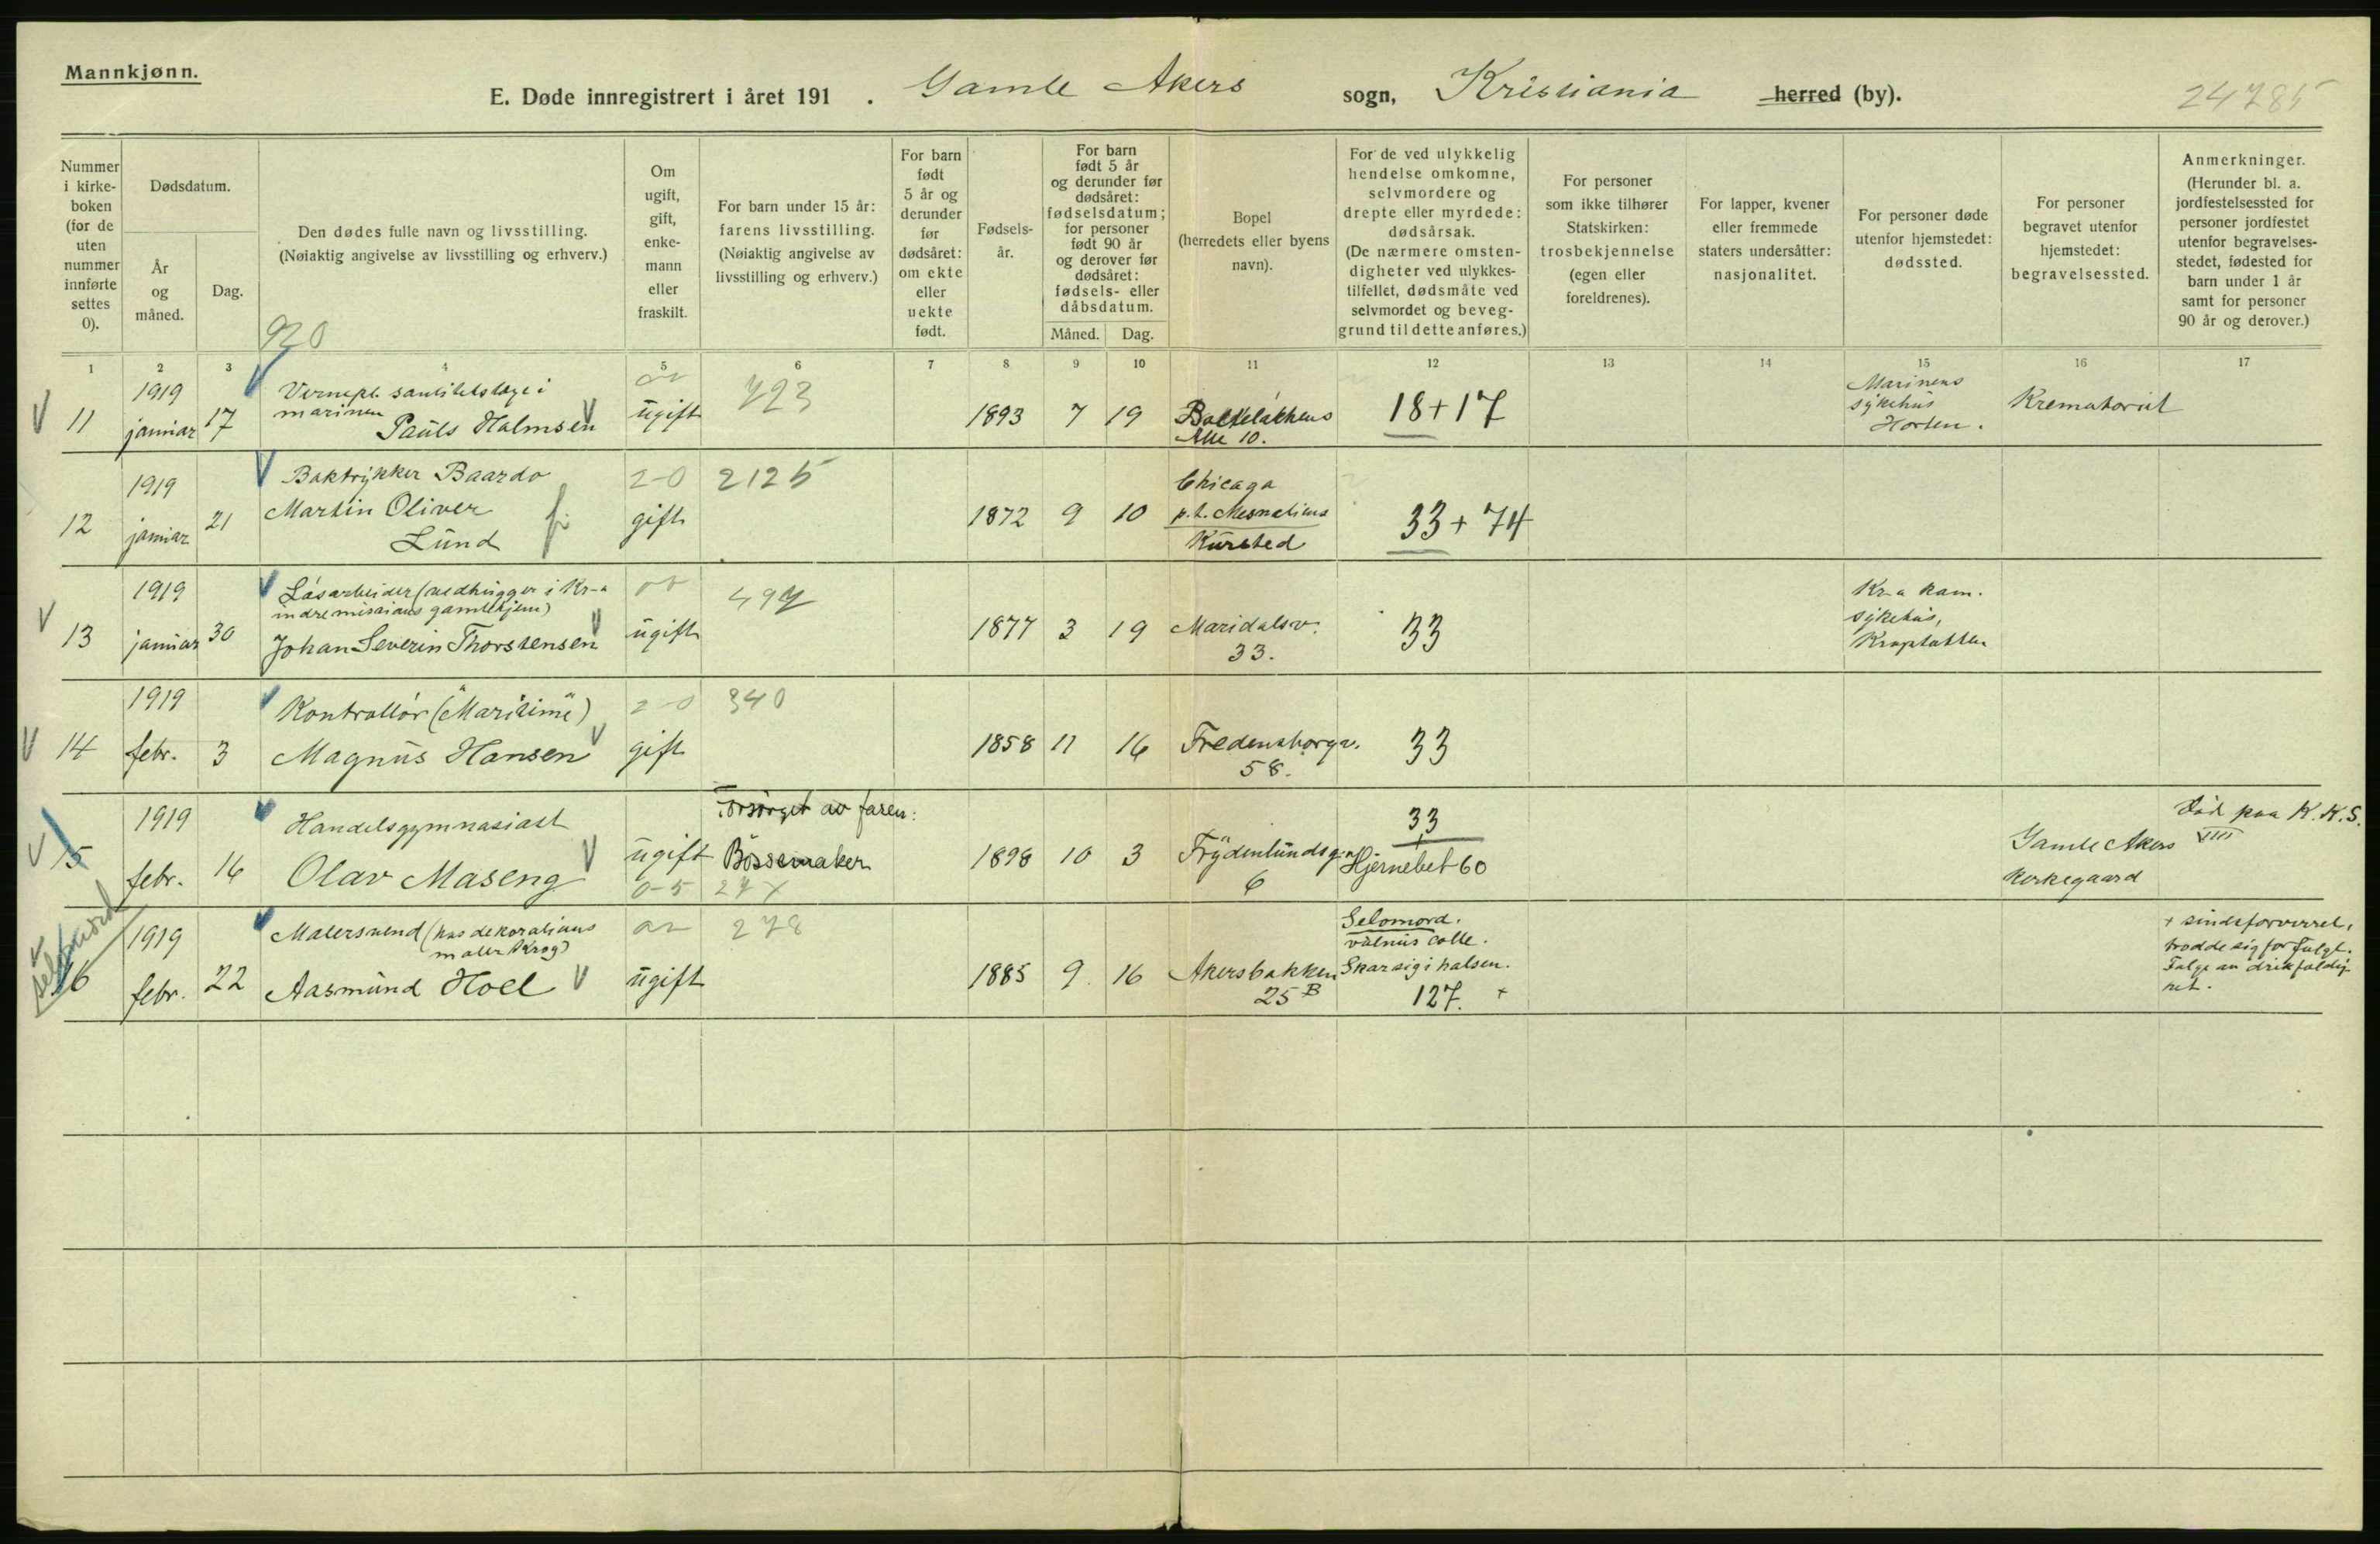 Mannkjønn.
E. Døde innregistrert i året 191 . Gamle Akers sogn, Kristiania herred (by).
24785
Nummer i kirke- boken (for de uten nummer innførte settes 0).
Dødsdatum.
År og måned.
Dag.
Den dødes fulle navn og livsstilling.
(Nøiaktig angivelse av livsstilling og erhverv.)
920
Om ugift, gift, enke- mann eller fraskilt.
For barn under 15 år: farens livsstilling.
(Nøiaktig angivelse av livsstilling og erhverv.)
For barn født 5 år og derunder før dødsåret: om ekte eller uekte født.
Fødsels- år.
For barn født 5 år og derunder før dødsåret: fødselsdatum; for personer født 90 år og derover før dødsåret: fødsels- eller dåbsdatum.
Måned. Dag.
Bopel
(herredets eller byens navn).
For de ved ulykkelig hendelse omkomne, selvmordere og drepte eller myrdede: dødsårsak.
(De nærmere omsten- digheter ved ulykkes- tilfellet, dødsmåte ved selvmordet og beveg- grund til dette anføres.)
For personer som ikke tilhører Statskirken: trosbekjennelse (egen eller foreldrenes).
For lapper, kvener eller fremmede staters undersåtter: nasjonalitet.
For personer døde utenfor hjemstedet: dødssted.
For personer begravet utenfor hjemstedet: begravelsessted.
Anmerkninger.
(Herunder bl. a. jordfestelsessted for personer jordfestet utenfor begravelses- stedet, fødested for barn under 1 år samt for personer 90 år og derover.)
1 2 3 4 5 6 7 8 9 10 11 12 13 14 15 16 17
11 1919 januar 17
Vernepl. sanitetslæge i
marinen
Pauls Holmsen
ugift
723
1893 7 19
Alle 10.
18+17
Marinens
sykehus
Horten.
Krematoriet
12 1919 januar 21
Boktrykker Baardo
Martin Oliver
Lund
2-0
gift
2125
1872 9 10
Chicago
p.t. Mesnaliens
Kursted
33+74
13 1919 januar 30
Løsarbeider (vedhugger i Kr-a
indremisions gamlehjem)
Johan Severin Thorstensen
ugift
497
1877 3 19
Maridalsv.
33.
33
Kr-a kom.
sykehus,
Krogstøtten
14 1919 febr. 3
Kontrollør ("Maritime")
Magnus Hansen
2-0
gift
340
1858 11 16
Fredensborgv.
58.
33
15 1919 febr. 16
Handelsgymnasiast
Olav Maseng
ugift
0-5
Forsørget av faren:
Bøssemaker
27x
1898 10 3
Frydenlundsg.
6
33
+
Hjernebet 60
Gamle Akers
kirkegaard
Død paa K.K.S.
VIII
selvmord
16 1919 febr. 22
Malersvend (hos dekorations
maler Krog)
Aasmund Hoel
ugift
278
1885 9 16
Akersbakken
25 B
Selvmord.
vulnus colle.
Skar sig i halsen.
127. +
+ sindsforvirret,
trodde sig forfulgt.
Følge av drikfældig-
het.